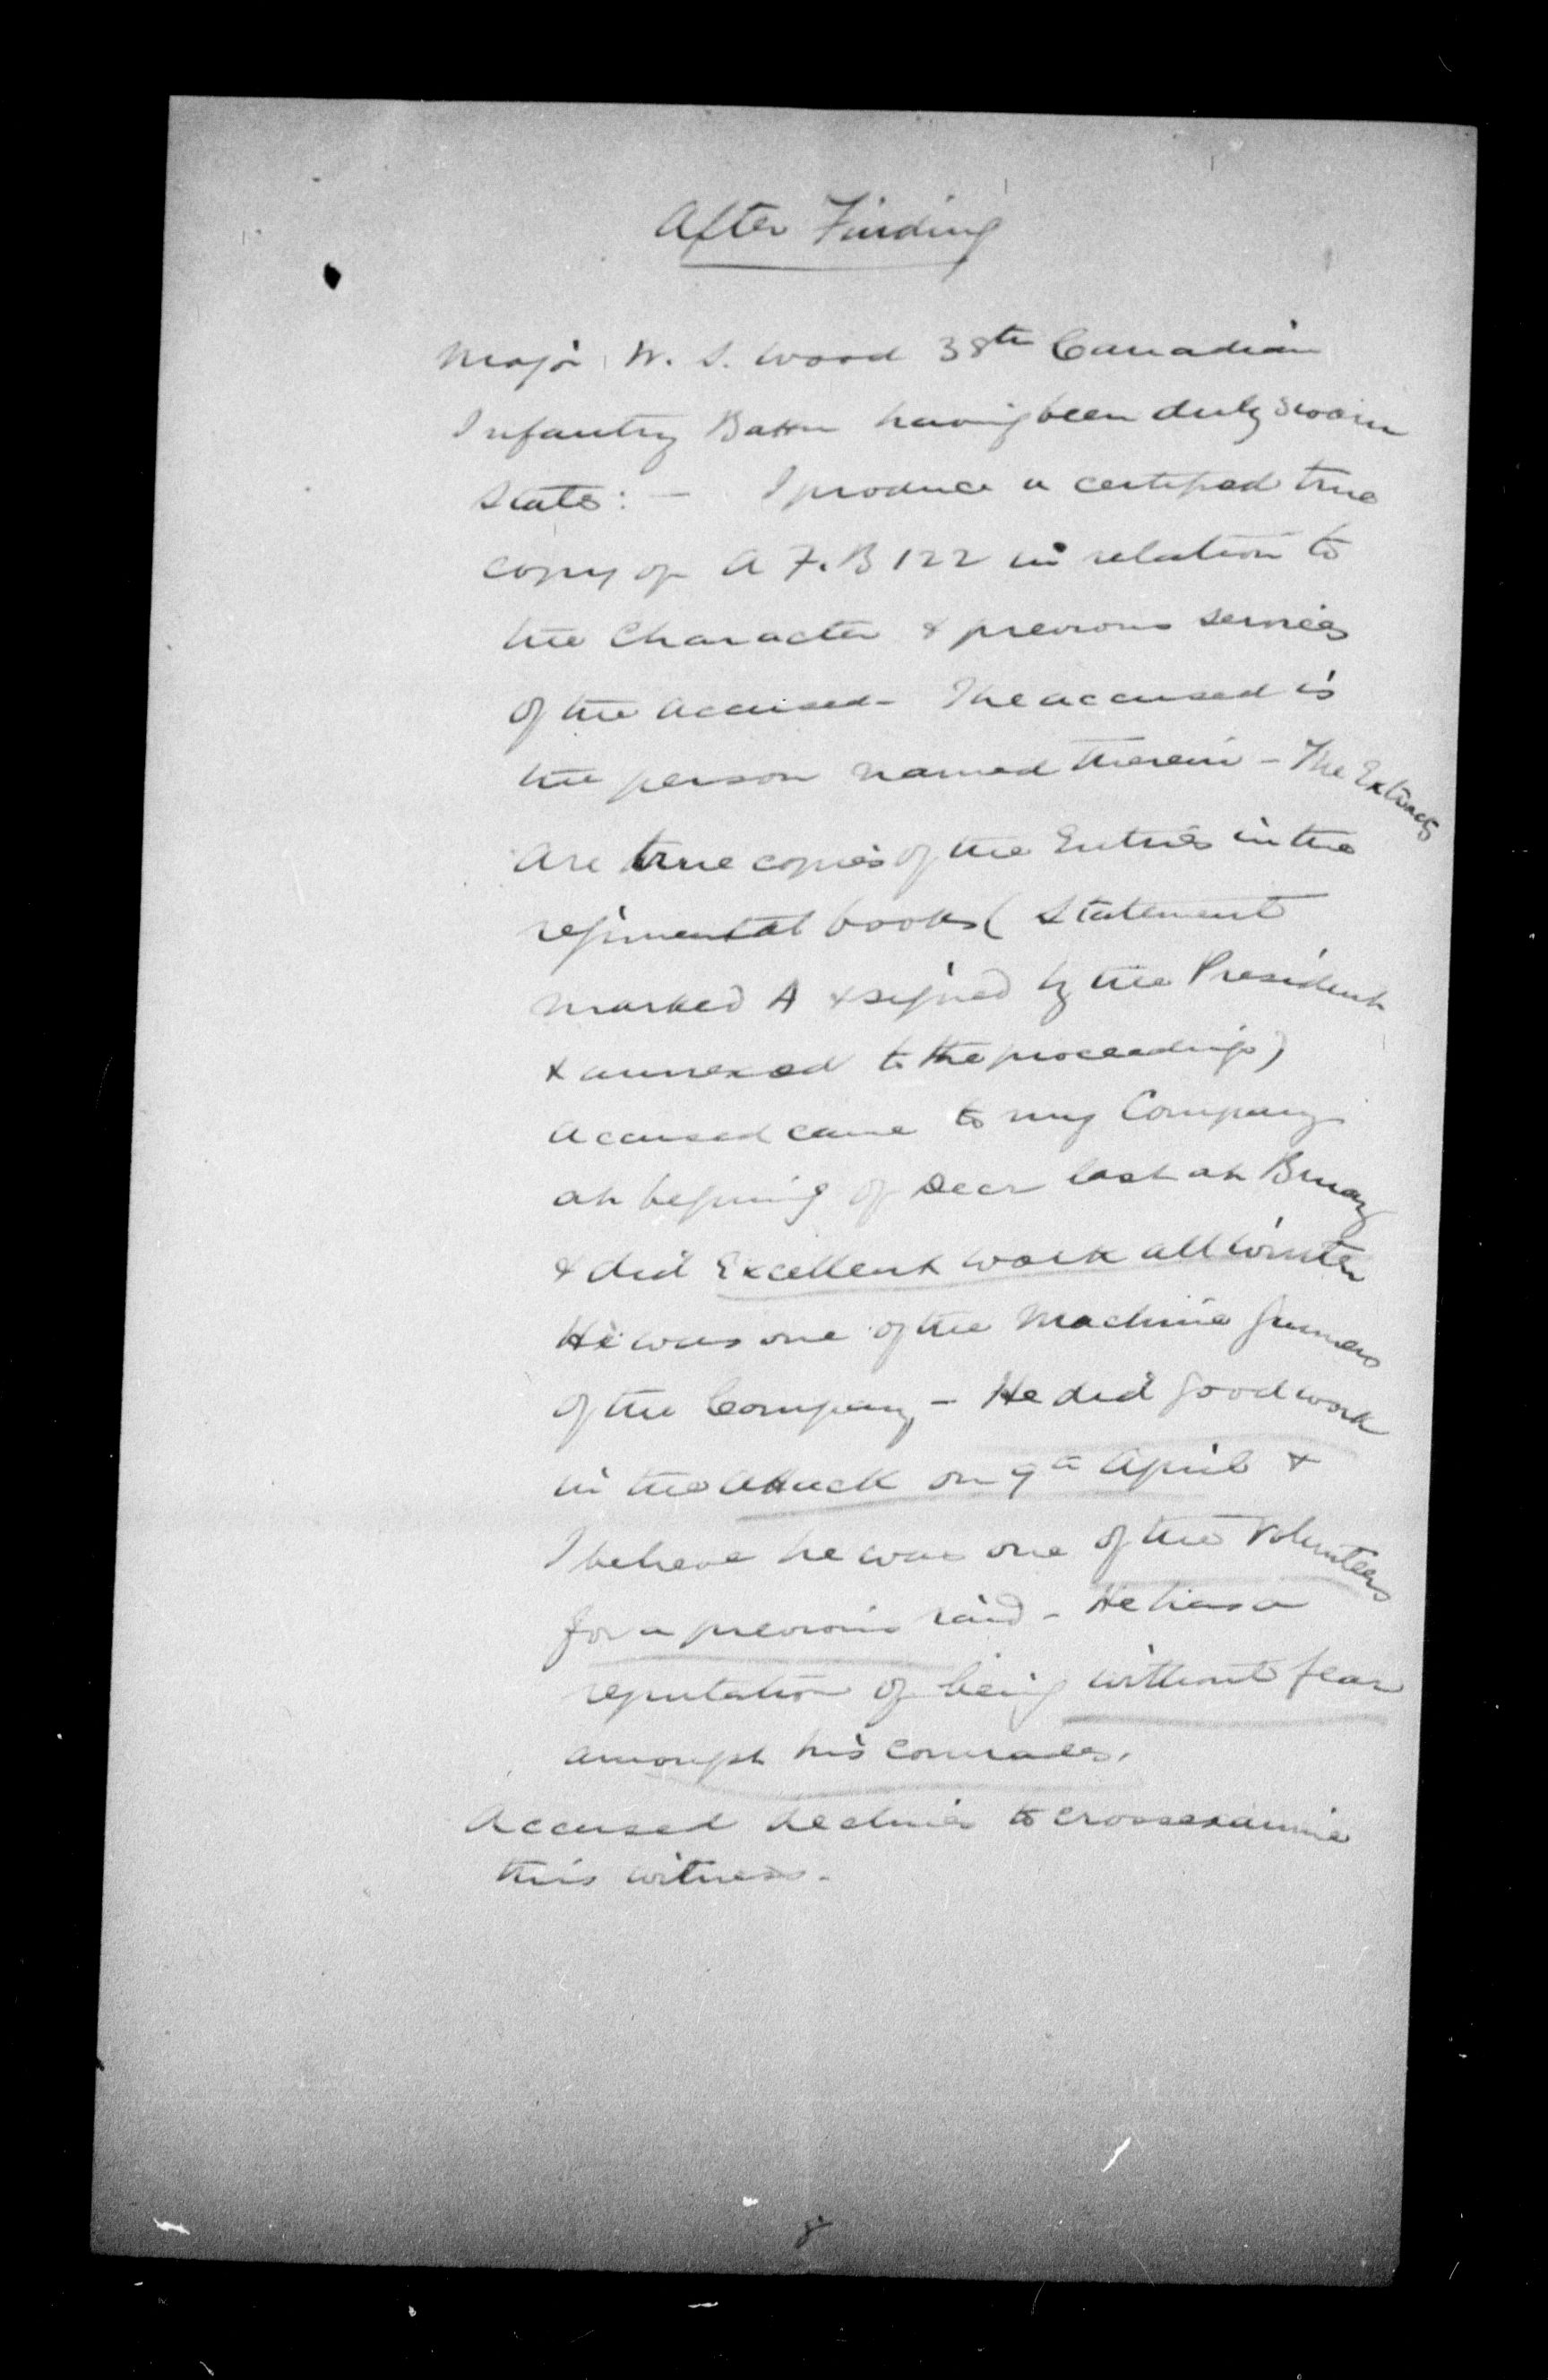 After Finding
Major W. S. Wood 38th Canadian
Infantry Battn having been duly sworn
states: - I produce a certified true
copy of A F. B 122 in relation to
the Character & previous services
of the accused - The accused is
the person named therein - The Extracts
are true copies of the Entries in the
regimental books ( Statement
marked A & signed by the President
& annexed to the proceedings)
Accused came to my Company
at begining of Decr last at Bruay
& did Excellent work all winter
He was one of the Machine gunners
of the Company - He did good work
in the attack on 9th April &
I believe he was one of the Volunteers
for a previous raid - He has a
reputation of being without fear
amongst his comrades.
Accused declines to cross examine
this witness.
8